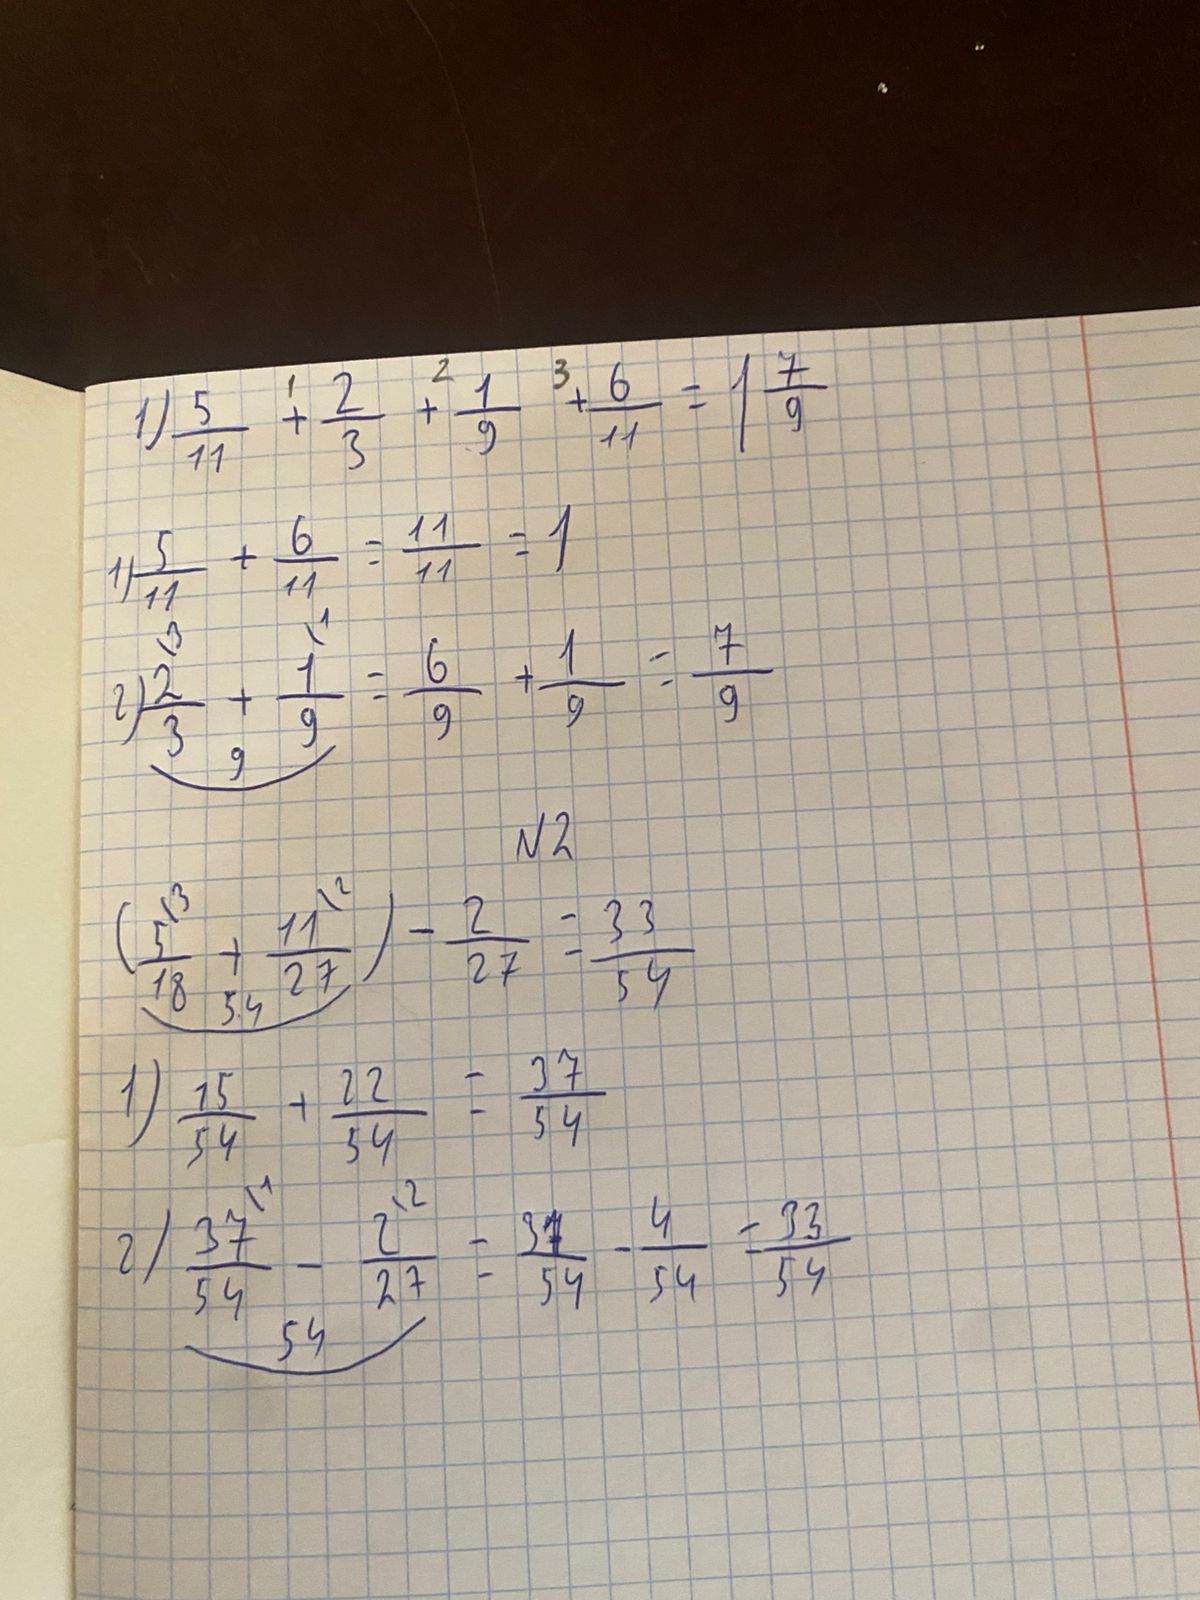 1) 5/11 + 2/3 + 1/9 + 6/11 = 1 7/9
1 2 3
1) 5/11 + 6/11 = 11/11 = 1
2) 2\3/3 + 1\1/9 = 6/9 + 1/9 = 7/9
9
N2
(5\3/18 + 11\2/27) - 2/27 = 33/54
54
1) 15/54 + 22/54 = 37/54
2) 37\1/54 - 2\2/27 = 37/54 - 4/54 = 33/54
54